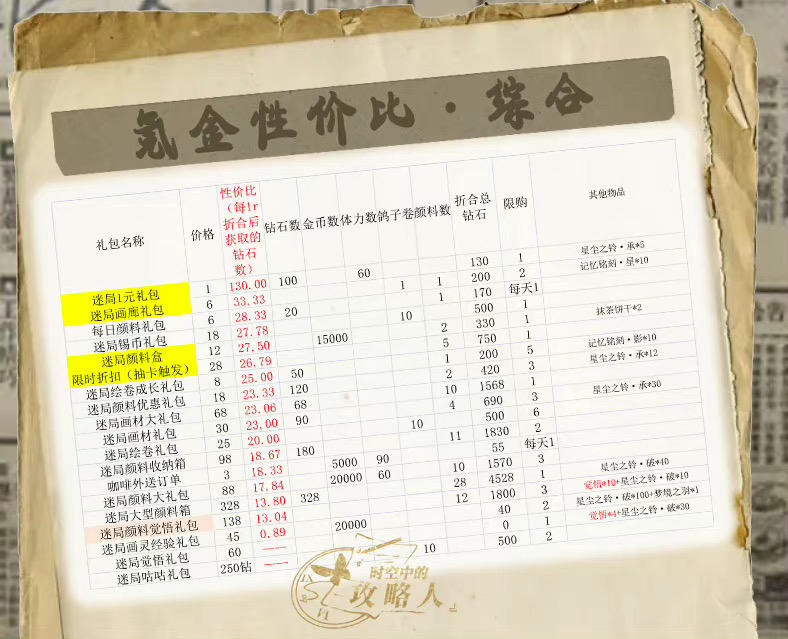 氪金性价比·综合
礼包名称 价格 性价比（每1r折合后获取的钻石数） 钻石数 金币数 体力数 鸽子卷 颜料数 折合总钻石 限购 其他物品
迷局1元礼包 1 130.00 100 60 130 1 星尘之铃·承*5
迷局画廊礼包 6 33.33 1 1 200 2 记忆铭刻·星*10
每日颜料礼包 6 28.33 20 1 170 每天1
迷局锡币礼包 18 27.78 10 500 1
迷局颜料盒 12 27.50 15000 2 330 1 抹茶饼干*2
限时折扣（抽卡触发） 28 26.79 5 750 5
迷局绘卷成长礼包 8 25.00 50 1 200 5 记忆铭刻·影*10
迷局颜料优惠礼包 18 23.33 120 2 420 3 星尘之铃·承*12
迷局画材大礼包 68 23.06 68 10 1568 1
迷局画材礼包 30 23.00 90 4 690 3 星尘之铃·承*30
迷局绘卷礼包 25 20.00 10 500 6
迷局颜料收纳箱 98 18.67 180 11 1830 2
咖啡外送订单 3 18.33 5000 90 55 每天1
迷局颜料大礼包 88 17.84 20000 60 10 1570 3
迷局大型颜料箱 328 13.80 328 28 4528 1 星尘之铃·破*40
迷局颜料觉悟礼包 138 13.04 12 1800 3 觉悟*10+星尘之铃·破*10
迷局画灵经验礼包 45 0.89 20000 40 2 星尘之铃·破*100+梦境之羽*1
迷局觉悟礼包 60 —— 0 1 觉悟*4+星尘之铃·破*30
迷局咕咕礼包 250钻 —— 10 500 2
时空中的
攻略人